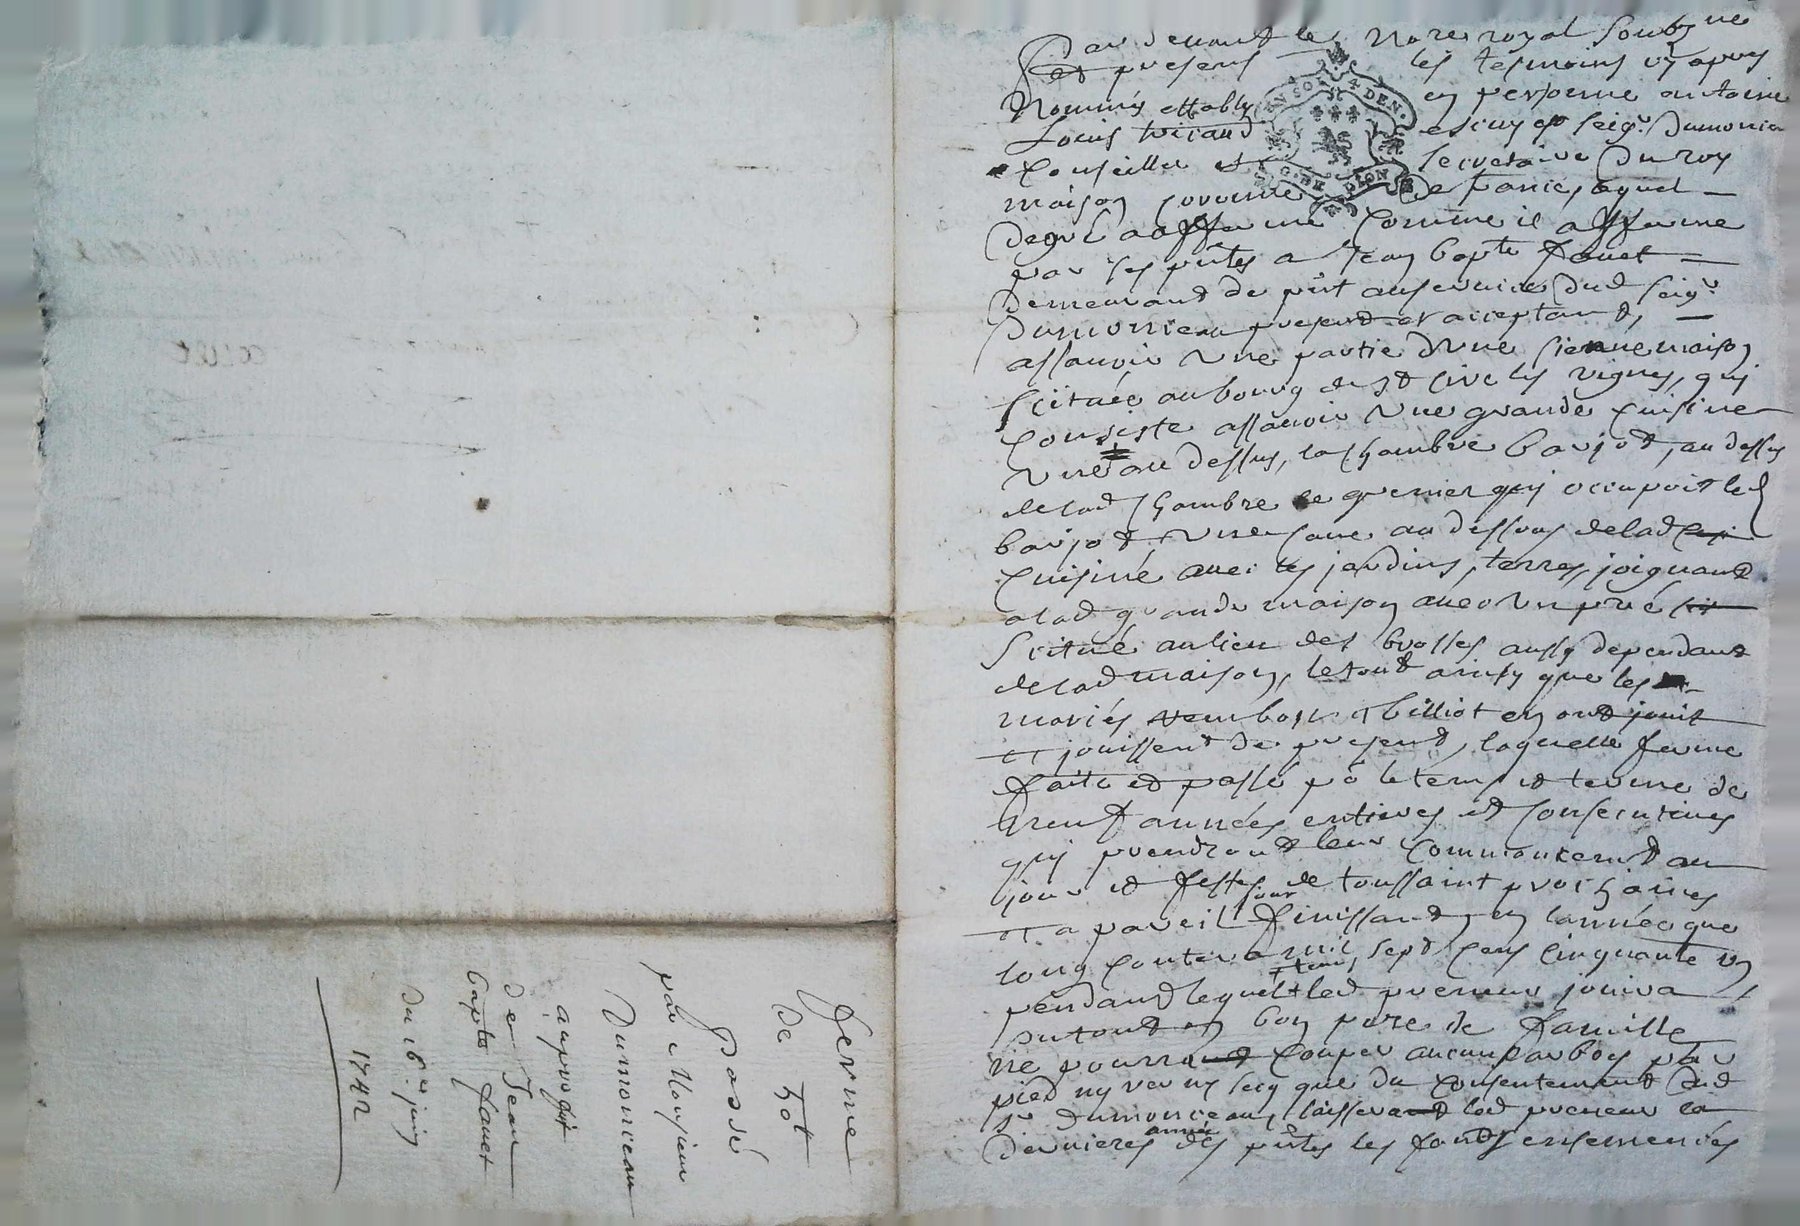 Par devant le No.re royal soubs.ne
et presens les tesmoins cy apres
Nommés estably en personne antoine
Louis escuyer seig.r Dumoncea
Conseiller et secretaire du roy
maison couronne de france, lequel
de gré a affermé comme il afferme
par ces p.ntes a Jean bap.te fanet
demeurant de p.nt au service dud seig.r
Dumonceau present et acceptant,
assavoir une partie d'une sienne maison
scituée au bourg de st cire les vignes, qui
consiste assavoir une grande cuisine
une au dessus, la chambre barjot, au dessus
de lad chambre le grenier qui occupoit led
barjot, une cave au dessous de lad cui
cuisine avec les jardins, terres, joignant
a lad grande maison avec un pré sit
scitué au lieu des brosses aussy dependant
de lad maison, le tout ainsy que les
mariés thilliot en ont jouit
et jouissent de present, laquelle ferme
faite et passé p.r le tems et terme de
neuf années entieres et consecutives
qui prendront leur commancem.t au
jour et feste de toussaint prochaines
et a pareil jour finissant, en l'année que
l'on contera mil sept cens cinquante un
pendant lequel tems led preneur jouira
du tout en bon pere de famille
ne pourra couper aucun arbre par
pied ny vert ny secq que du consentement dud
s.r dumonceau, laissera led preneur la
derniere année des p.ntes les fonds ensemencés
ferme
de
Passé
par Monsieur
Dumonceau
au profit
de Jean
bap.te fanet
du 16.e juin
1742
4 DEN.
G. DE LION